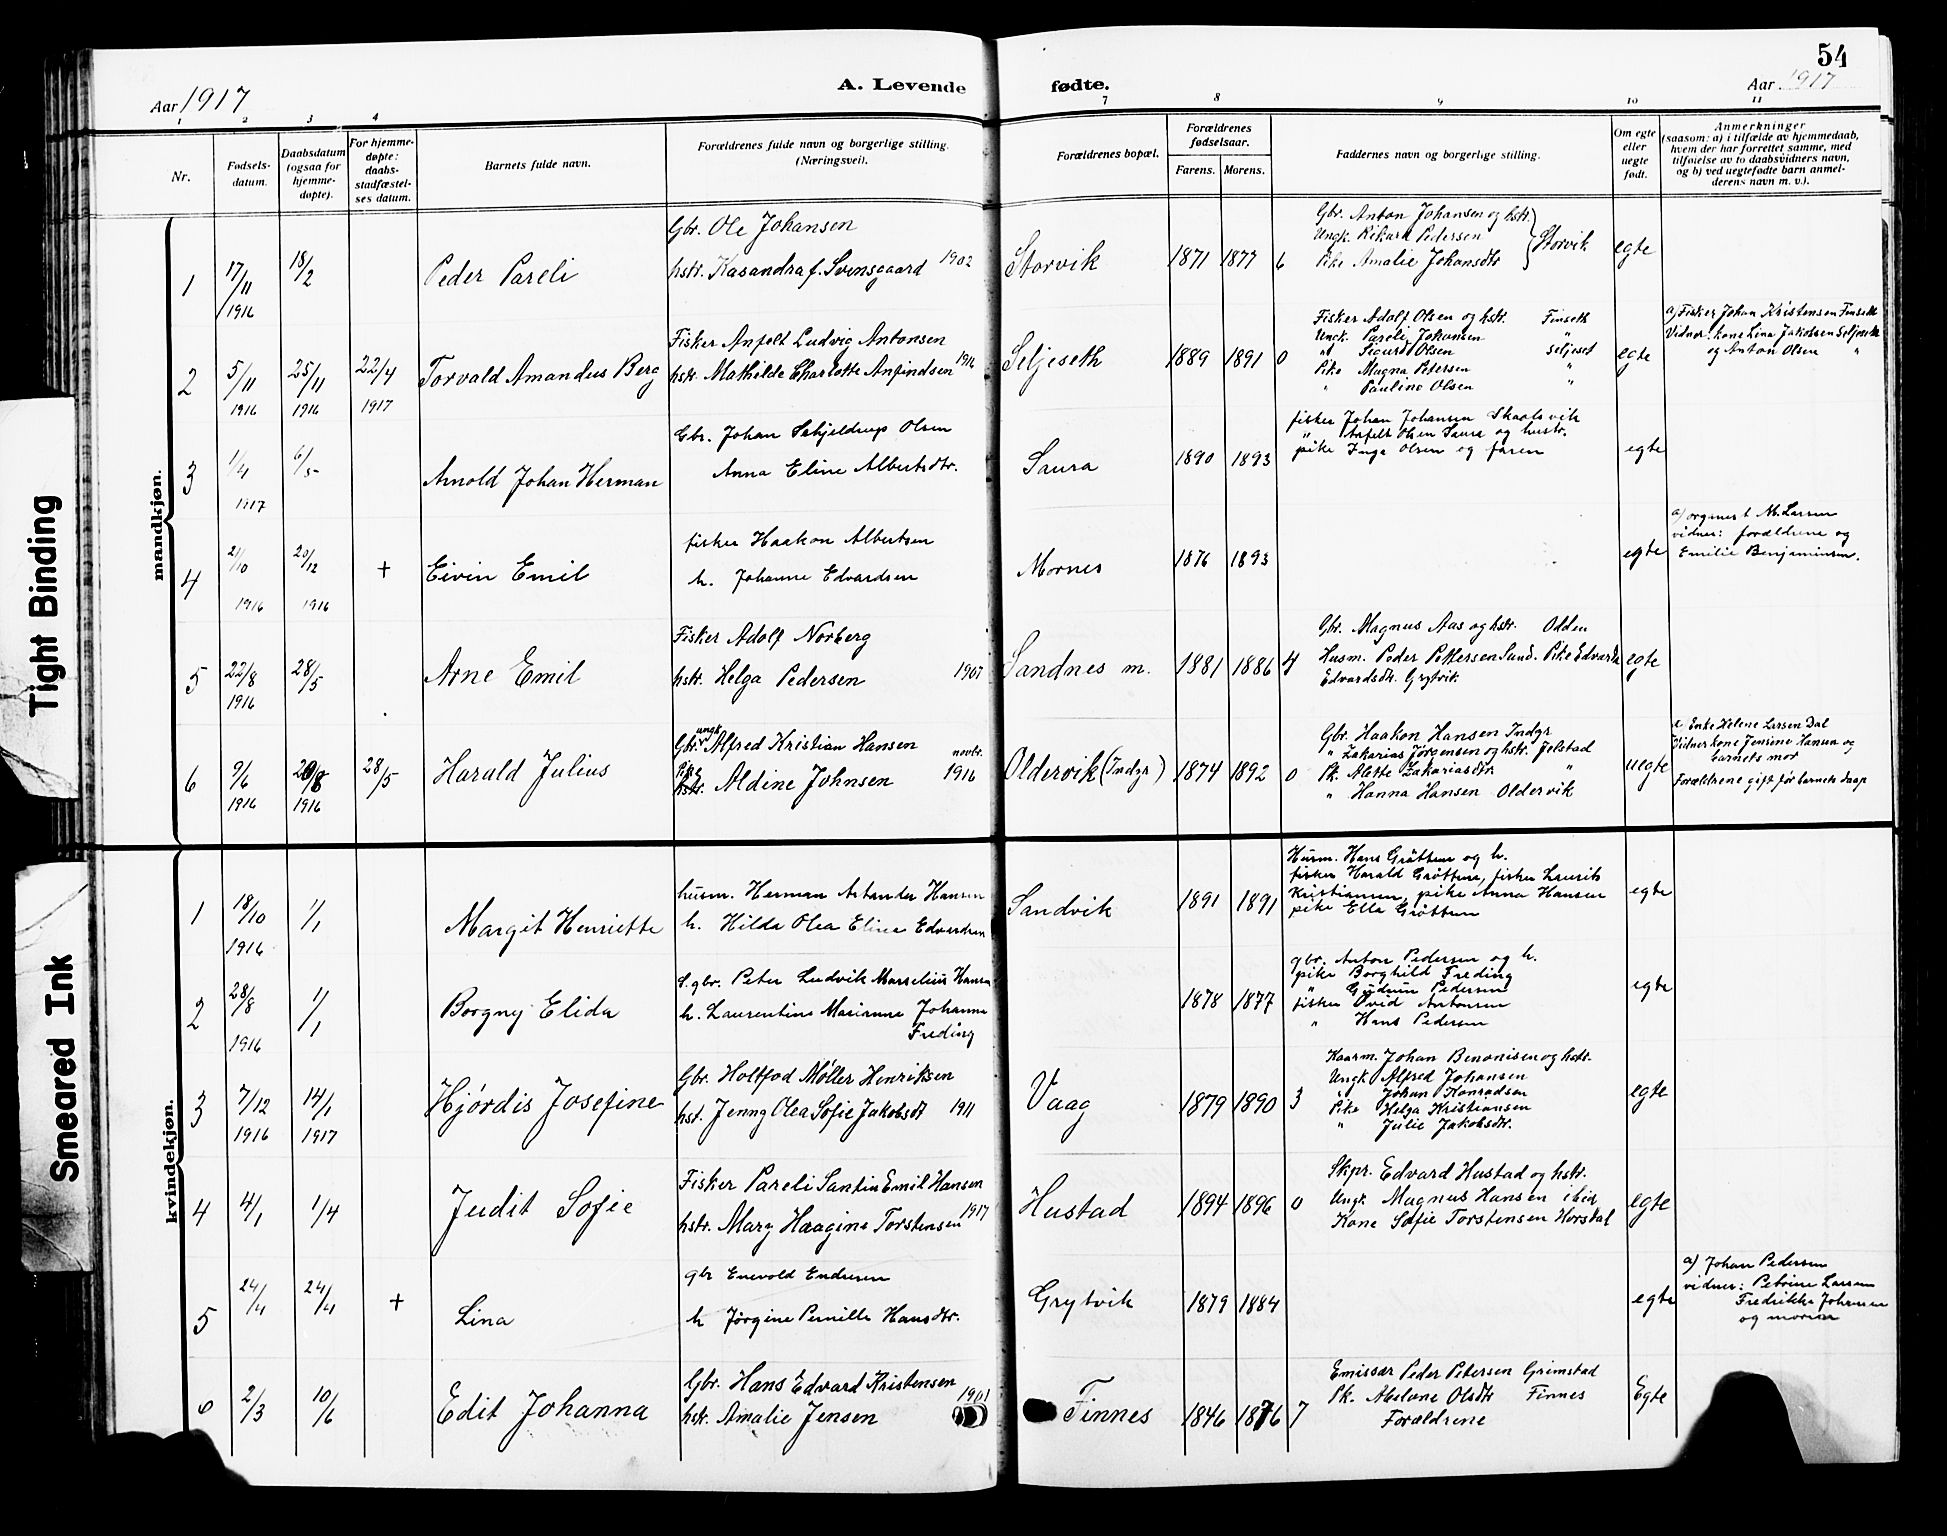 54
Aar 1917
A. Levende fødte.
Aar 1917
1 2 3 4 7 8 9 10 11
Nr.
Fødsels-
datum.
Daabsdatum
(ogsaa for
hjemme-
døpte).
For hjemme-
døpte:
daabs-
stadfæstel-
ses datum.
Barnets fulde navn.
Forældrenes fulde navn og borgerlige stilling.
(Næringsvei).
Forældrenes bopæl.
Forældrenes
fødselsaar.
Farens. Morens.
Faddernes navn og borgerlige stilling.
Om egte
eller
uegte
født.
Anmerkninger
(saasom: a) i tilfælde av hjemmedaab,
hvem der har forrettet samme, med
tilføielse av to daabsvidners navn,
og b) ved uegtefødte barn anmel-
derens navn m. v.).
mandkjøn.
1
17/11
1916
18/2
Peder Pareli
Gbr. Ole Johansen
hstr. Kasandra f. Svensgaard 1902
Storvik
1871 1877 6
Gbr. Anton Johansen og hstr.
Ungk. Rikard Pedersen
Pike Amalie Johansdtr
Storvik
egte
2
5/11
1916
25/11
1916
22/4
1917
Torvald Amandus Berg
Fisker Anfelt Ludvig Antonsen
hstr. Mathilde Charlotte Anfindsen 1916
Seljeseth
1889 1891 0
Fisker Adolf Olsen og hstr. Finseth
Ungk. Pareli Johansen "
" Sigurd Olsen Seljeset
Pike Magna Petersen "
" Pauline Olsen "
egte
a) Fisker Johan Kristensen Finseth
Vidner: kone Lina Jakobsen Seljeseth
og Anton Olsen "
3
1/4
1917
6/5
Arnold Johan Herman
Gbr. Johan Schjeldrup Olsen
Anna Eline Albertsdtr.
Saura
1890 1893
fisker Johan Johansen Skaalsvik
" Anfelt Olsen Saura og hustr.
pike Inga Olsen og faren
egte
4
21/10
1916
20/12
1916
+
Eivin Emil
fisker Haakon Albertsen
h. Johanne Edvardsen
Mornes
1876 1893
egte
a) M. Larsen
vidner: forældrene og
Emilie Benjaminsen.
5
22/8
1916
28/5
Arne Emil
Fisker Adolf Norberg
hstr. Helga Pedersen 1907
Sandnes m.
1881 1886 4
Gbr. Magnus Aas og hstr. Odden
Husm. Peder Pettersen Sand. Pike Edvarda
Edvardsdtr. Grytvik
egte
6
9/6
1916
20/8
1916
28/5
Harald Julius
ungk.
Gbr. Alfred Kristian Hansen
Pike
hstr. Aldine Johnsen novbr. 1916
Oldervik (Indgr)
1874 1892 0
Gbr. Haakon Hansen Indgr
" Zakarias Jørgensen og hstr. Jelstad
Pk. Alette Zakariasdtr "
" Hanna Hansen Oldervik
uegte
Enke Helene Larsen Dal
Vidner kone Jensine Hansen og
barnets mor
Forældrene gift før barnets daap
kvindekjøn.
1
18/10
1916
1/1
Margit Henriette
husm. Herman Astander Hansen
h. Hilda Olea Elina Edvardsen
Sandvik
1891 1891
Husm. Hans Grøttum og h.
fisker Harald Grøttum, fisker Laurits
Kristiansen, pike Anna Hansen
pike Ella Grøttum
egte
2
28/8
1916
1/1
Borgny Elida
S. gbr. Peter Ludvik Marselius Hansen
h. Laurentine Marianne Johanne
Freding
1878 1877
gbr. Anton Pedersen og h.
pike Borghild Freding
" Gudrun Pedersen
fisker Ovid Antonsen
" Hans Pedersen
egte
3
7/12
1916
14/1
1917
Hjørdis Josefine
Gbr. Holtfod Møller Henriksen
hst. Jenny Olea Sofie Jakobsdt 1911
Vaag
1879 1890 3
Kaarm. Johan Benonisen og hstr.
Ungk. Alfred Johansen
" Johan Konradsen
Pike Helga Kristiansen
" Julie Jakobsdtr.
egte
4
4/1
1/4
Judit Sofie
Fisker Pareli Santin Emil Hansen
hstr. Mary Haagine Torstensen 1917
Hustad
1894 1896 0
Skpr. Edvard Hustad og hstr.
Ungk Magnus Hansen ibid
Kone Sofie Torstensen Horsdal
egte
5
24/4
24/4
+
Lina
gbr Enevold Endresen
h Jørgine Pernille Hansdtr.
Grytvik
1879 1884
egte
a) Johan Pedersen
vidner: Petrine Larsen
Fredrikke Johansen
og moren
6
2/3
10/6
Edit Johanna
Gbr. Hans Edvard Kristensen
hstr. Amalie Jensen 1901
Finnes
1846 1876 7
Emissær Peder Petersen Grimstad
Pk. Abelone Olsdtr Finnes
Forældrene
Egte
Tight Binding
Smeared Ink